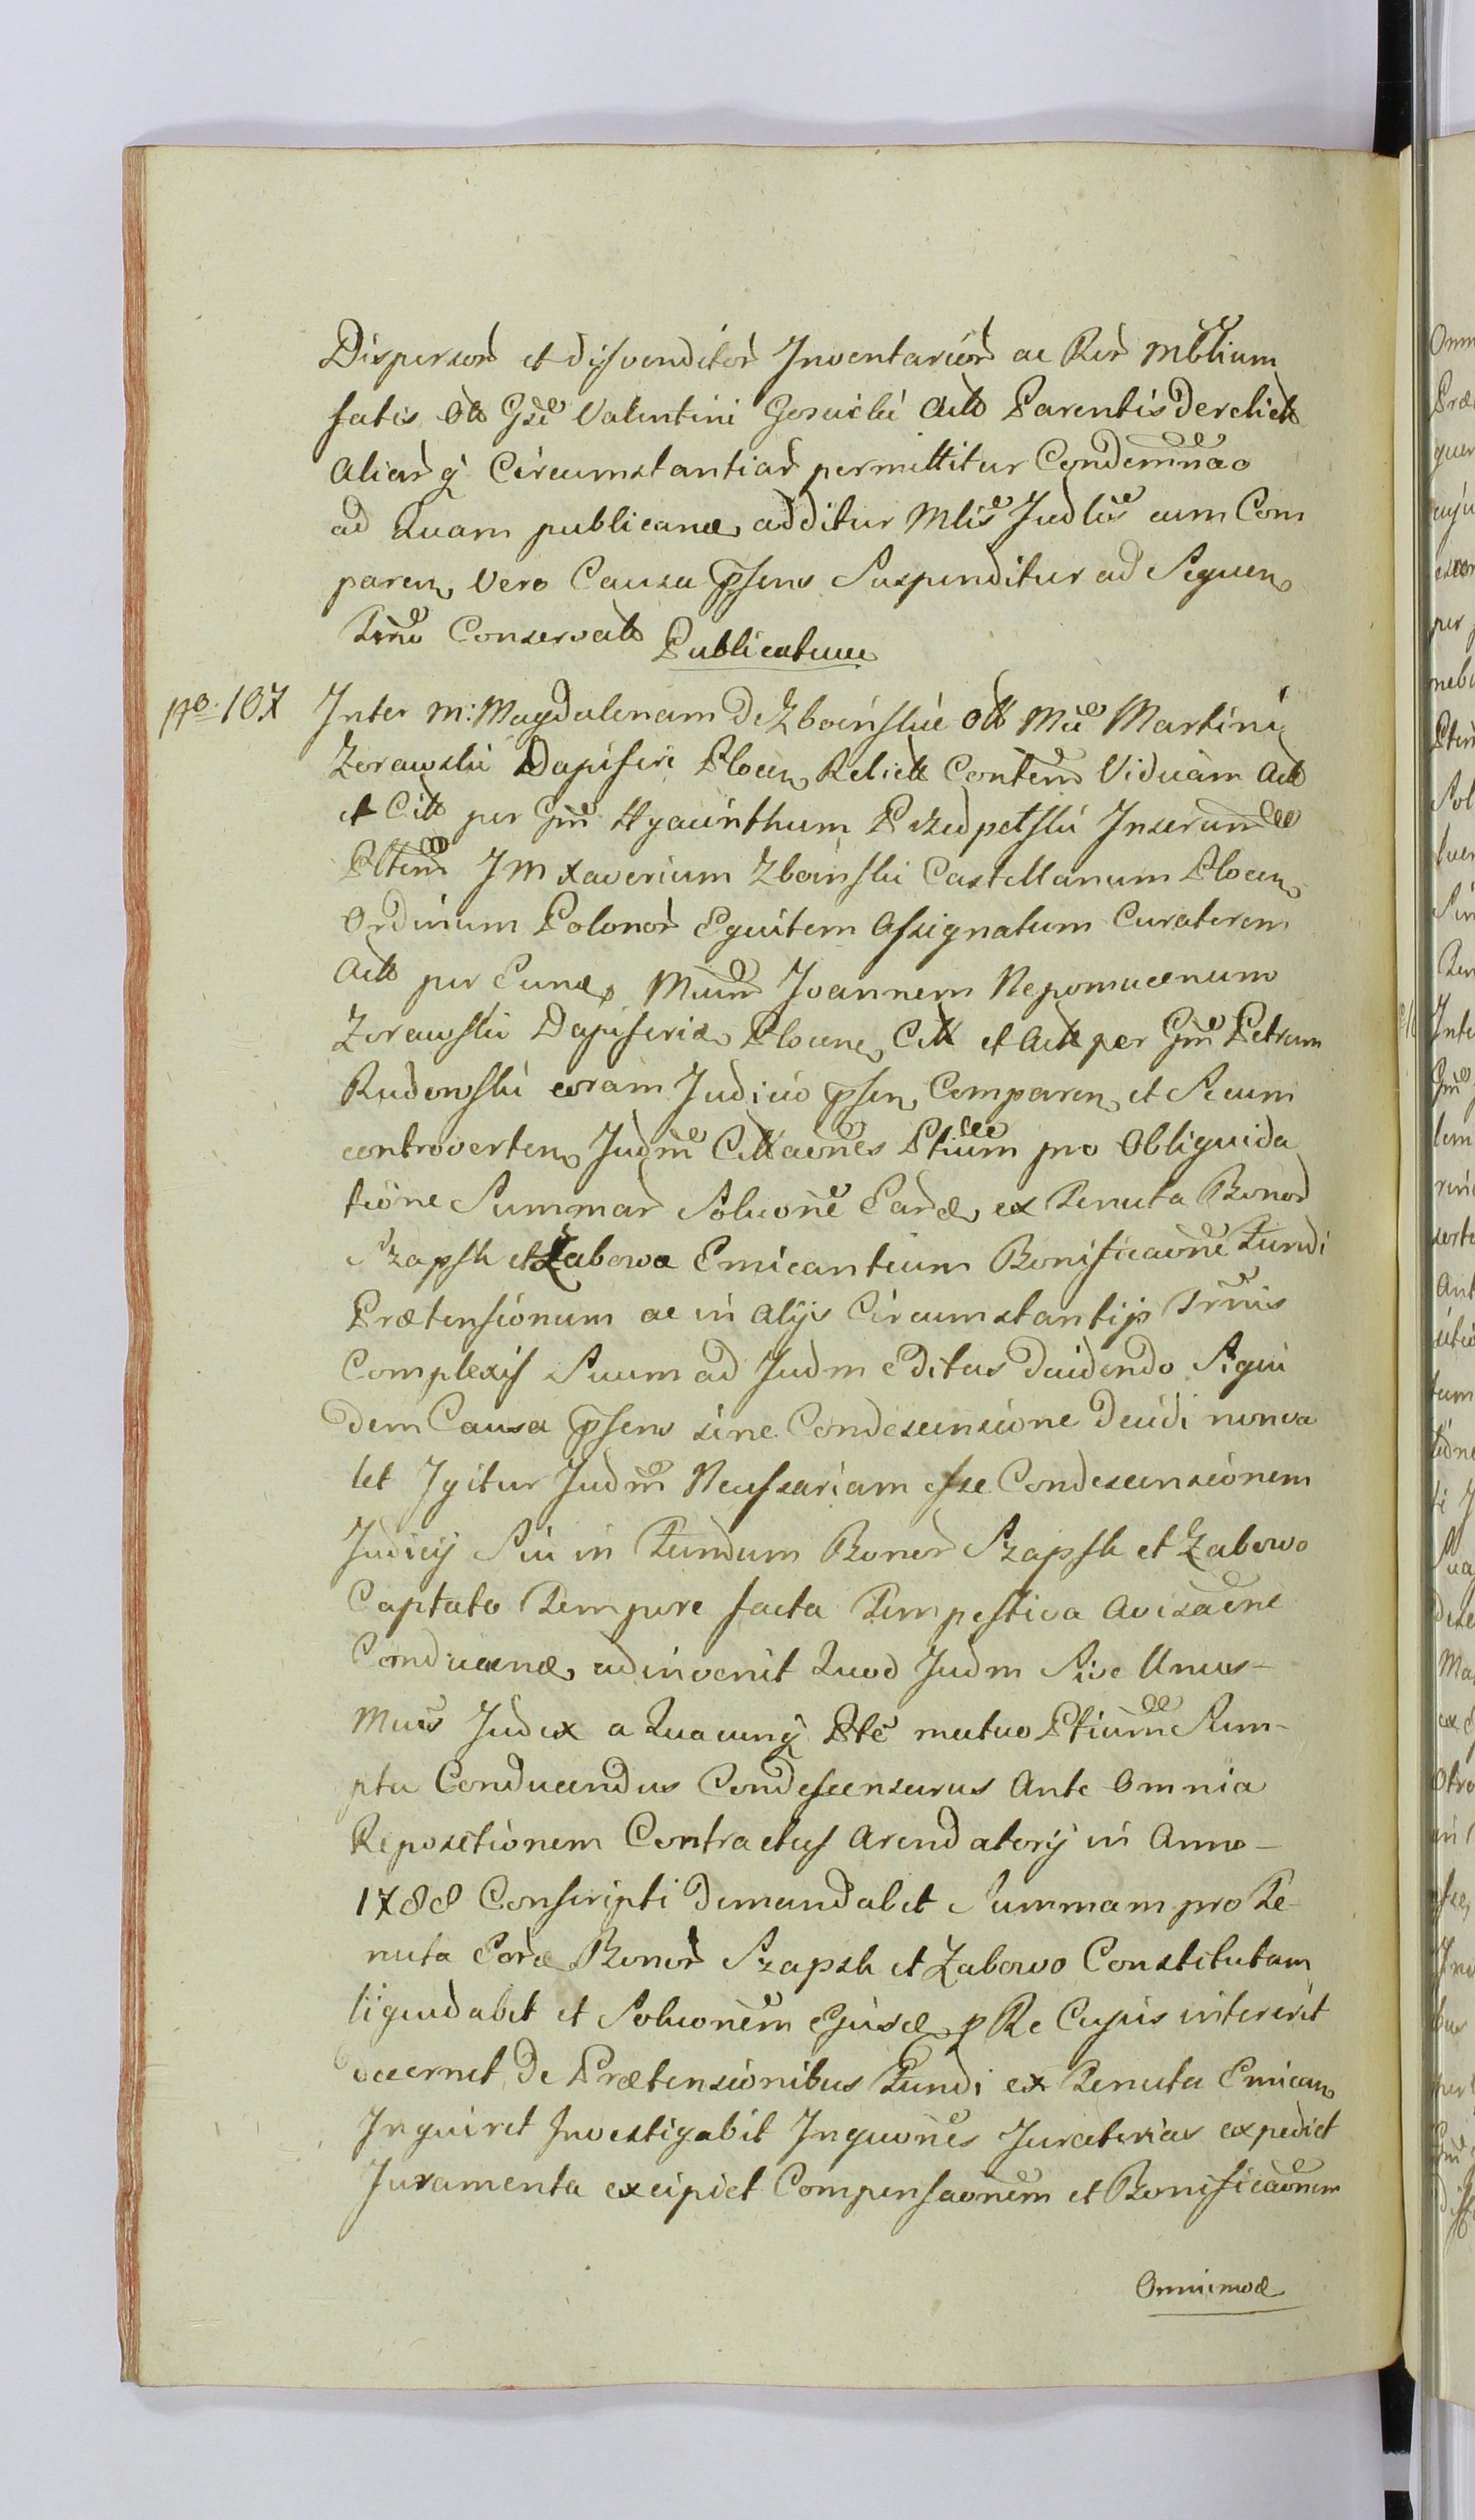 Disperson et disvenditor Inventarior ac Rer Mblium
fatis olt Gsi Valentini Gosiicki Actt Parentis Derelictt
aliar q Circumstantiar permittitur Condemnao
ad Quam publicand additur Mlis Judlis cum Com
paren Vero Causa psens Suspenditur ad Sequen
Trno Conservatt Publicatum
No. 107 Inter M: Magdalenam de Zboinskie olt Mci Martini
Zorawski Dapiferi Plocen Relictt Contem Viduam Actt
et Citt per Gm Hyacinthum Przedpełski Inserum
Pltem J M Xaverium Zboinski Castellanum Plocen
Ordinum Polonor Equitem Assignatum Curatorem
Actt per Eund Mcum Joannem Nepomucenum
Zorawski Dapiferid Plocen Citt et Actt per Gm Petrum
Rudowski coram Judicio psen Comparen et Secum
controverten Judm Cittaones Ptium pro Obliquida
tione Summar Soluone Eard ex Tenuta Bonor
Szapsk et Zabowo Emicantium Bonificaone Fundi
Prætensionum ac in alijs Circumstantijs Trnis
Complexis Suum ad Judm editas Decidendo Siqui
dem Causa psens sine Condescensione Decidi nonva
let Igitur Judm Necessariam esse Condescensionem
Judicij Sui in Fundum Bonor Szapsk et Zabowo
Captato Tempore facta Tempestiva Avizaone
Conducend adinvenit Quod Judm Sive Unus-
Mcus Judex a Quacunq Pte mutuo Ptium Sum-
ptu Conducendus Condescensurus Ante Omnia
Repositionem Contractus Arendatorij in Anno-
1788 Conscripti Demandabit Summam pro Te
nuta Eord Bonor Szapsk et Zabowo Constitutam
liquidabit et Soluonem Ejusd p Re Cujus intererit
decernet De Prætensionibus Fundi ex Tenuta Emican
Inquiret Investigabit Inquones Juratorias expediet
Juramenta excipiet Compensaonem et Bonificaonem
Omnimod